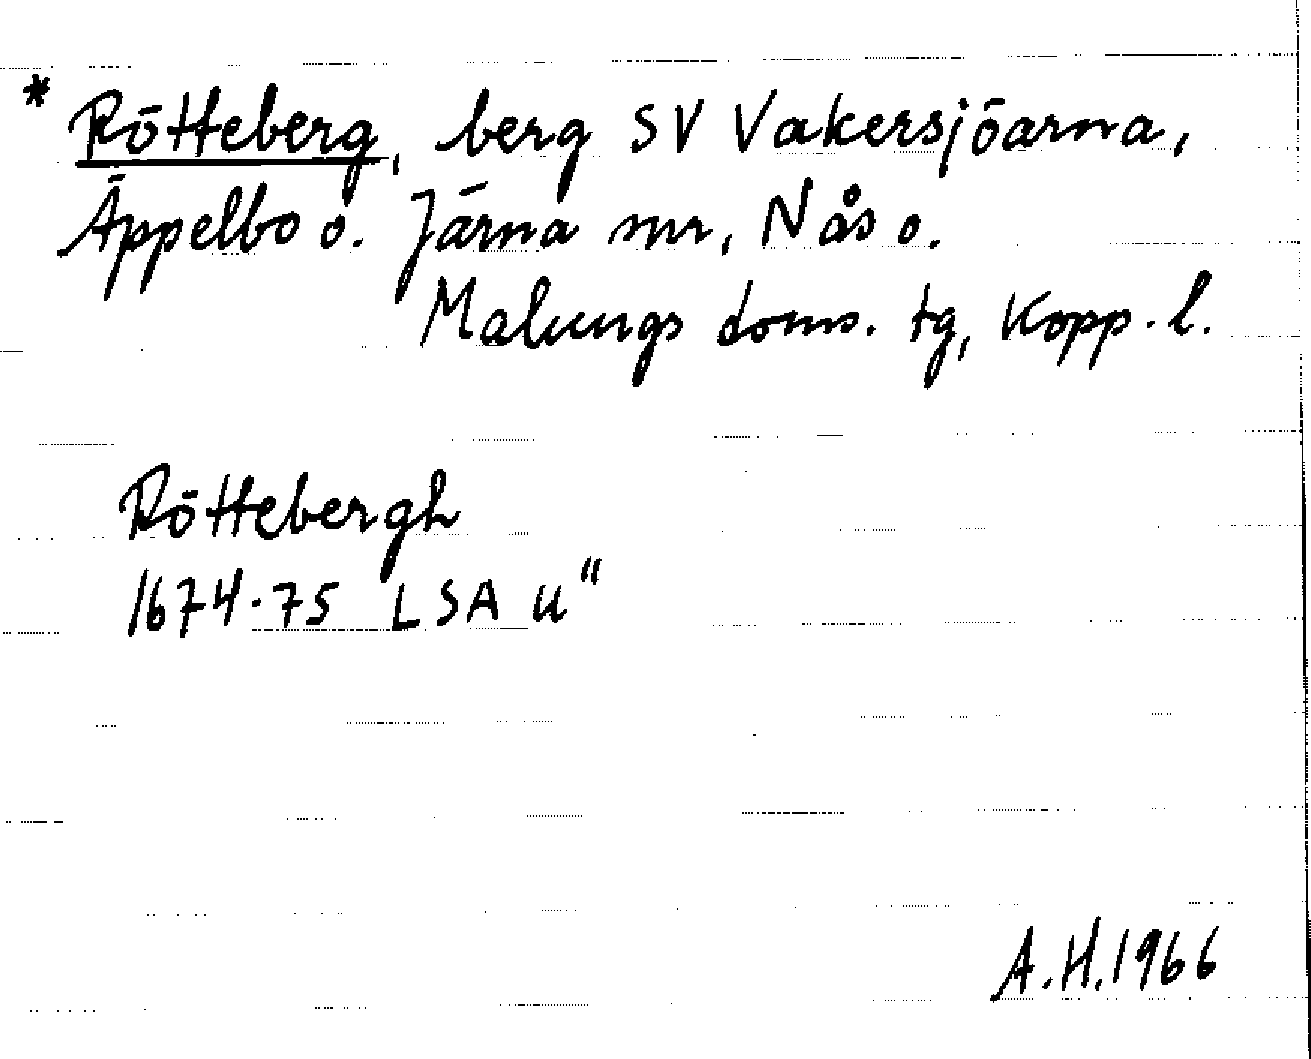 * Rötteberg, berg SV Vakersjöarna,
Äppelbo o. Järna snr, Nås o.
Malungs doms. tg, Kopp. l.
Röttebergh
1674-75 LSA U"
A.H. 1966